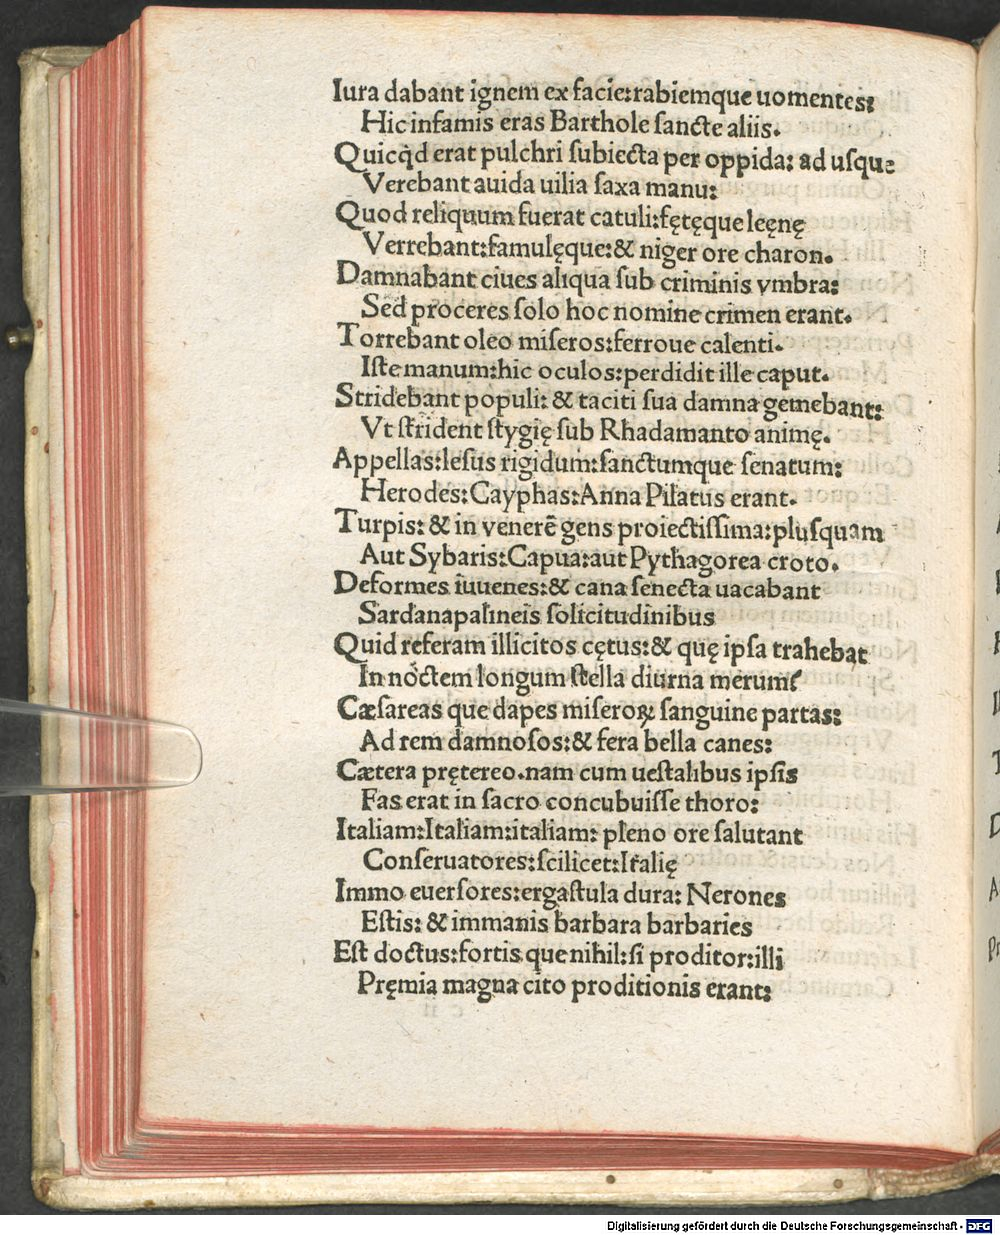 Iura dabant ignem ex facie:rabiemque uomentes:
Hic infamis eras Barthole sancte aliis.
Quicq̇d erat pulchri subiecta per oppida: ad usque
Verebant auida uilia saxa manu:
Quod reliquum fuerat catuli:fętęque leęnę
Verrebant:famulęque:& niger ore charon.
Damnabant ciues aliqua sub criminis vmbra:
Sed proceres solo hoc nomine crimen erant.
Torrebant oleo miseros:ferroue calenti.
Iste manum:hic oculos:perdidit ille caput.
Stridebant populi: & taciti sua damna gemebant:
Vt strident stygię sub Rhadamanto animę.
Appellas:lesus rigidum:sanctumque senatum:
Herodes:Cayphas:Anna Pilatus erant.
Turpis: & in venerē gens proiectissima:plusquam
Aut Sybaris:Capua:aut Pythagorea croto.
Deformes iuuenes:& cana senecta uacabant
Sardanapalineis solicitudinibus
Quid referam illicitos cętus:& quę ipsa trahebat
In noctem longum stella diurna merum?
Cæsareas que dapes miseroꝝ sanguine partas:
Ad rem damnosos:& fera bella canes:
Cætera prętereo.nam cum uestalibus ipsis
Fas erat in sacro concubuisse thoro:
Italiam:Italiam:italiam: pleno ore salutant
Conseruatores:scilicet:Italię
Immo euersores:ergastula dura: Nerones
Estis: & immanis barbara barbaries
Est doctus:fortis que nihil:si proditor:illi
Pręmia magna cito proditionis erant:
Digitalisierung gefördert durch die Deutsche Forschungsgemeinschaft - DFG